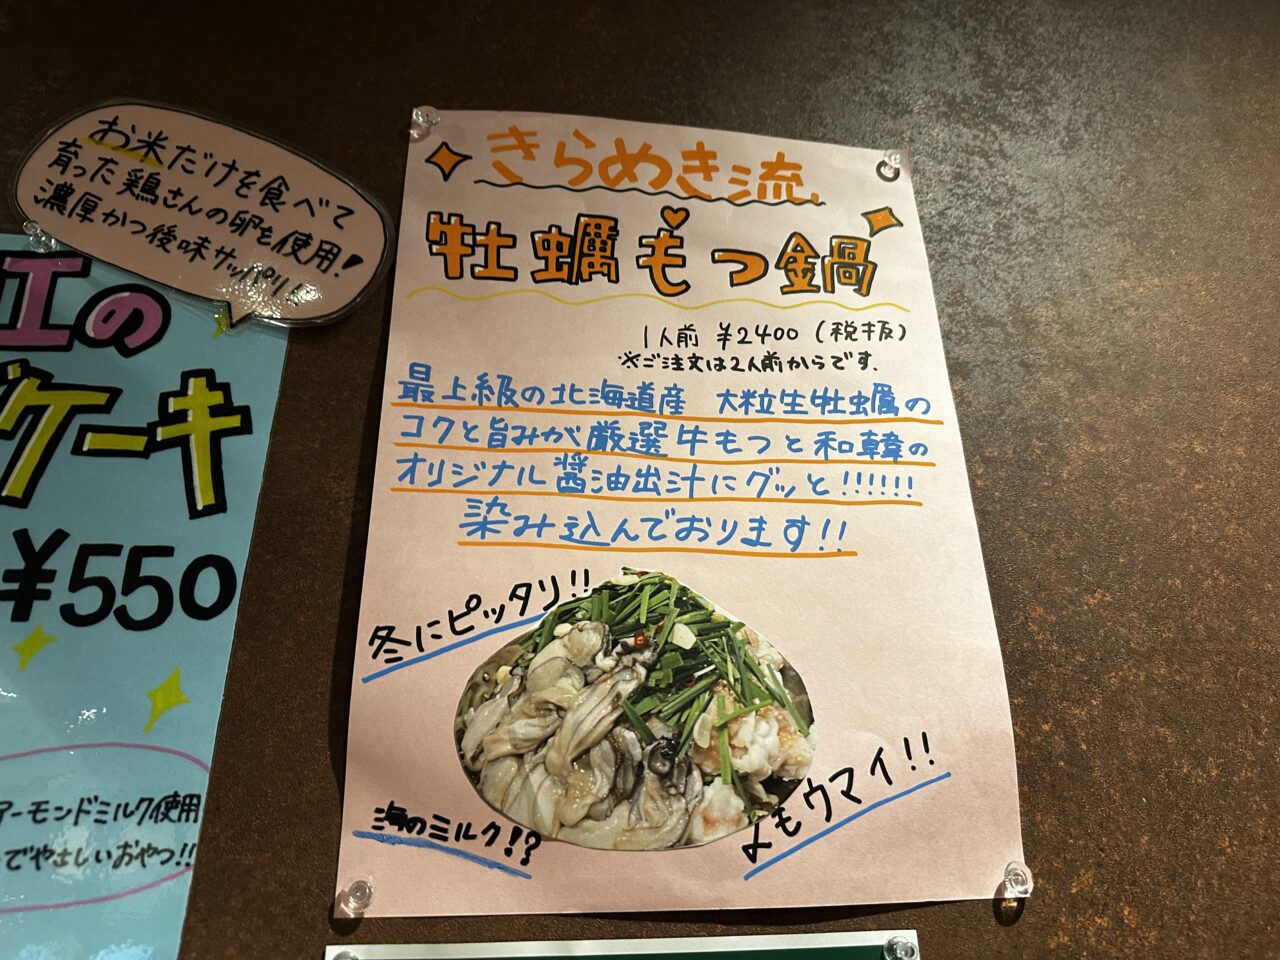 お米だけを食べて
育った鶏さんの卵を使用!
濃厚かつ後味サッパリ!
エの
ケーキ
¥550
アーモンドミルク使用
でやさしいおやつ!!
きらめき流
牡蠣もつ鍋
1人前 ¥2400(税抜)
※ご注文は2人前からです.
最上級の北海道産 大粒生牡蠣の
コクと旨みが厳選牛もつと和韓の
オリジナル醤油出汁にグッと!!!!!!
染み込んでおります!!
冬にピッタリ!!
海のミルク!?
よもウマイ!!